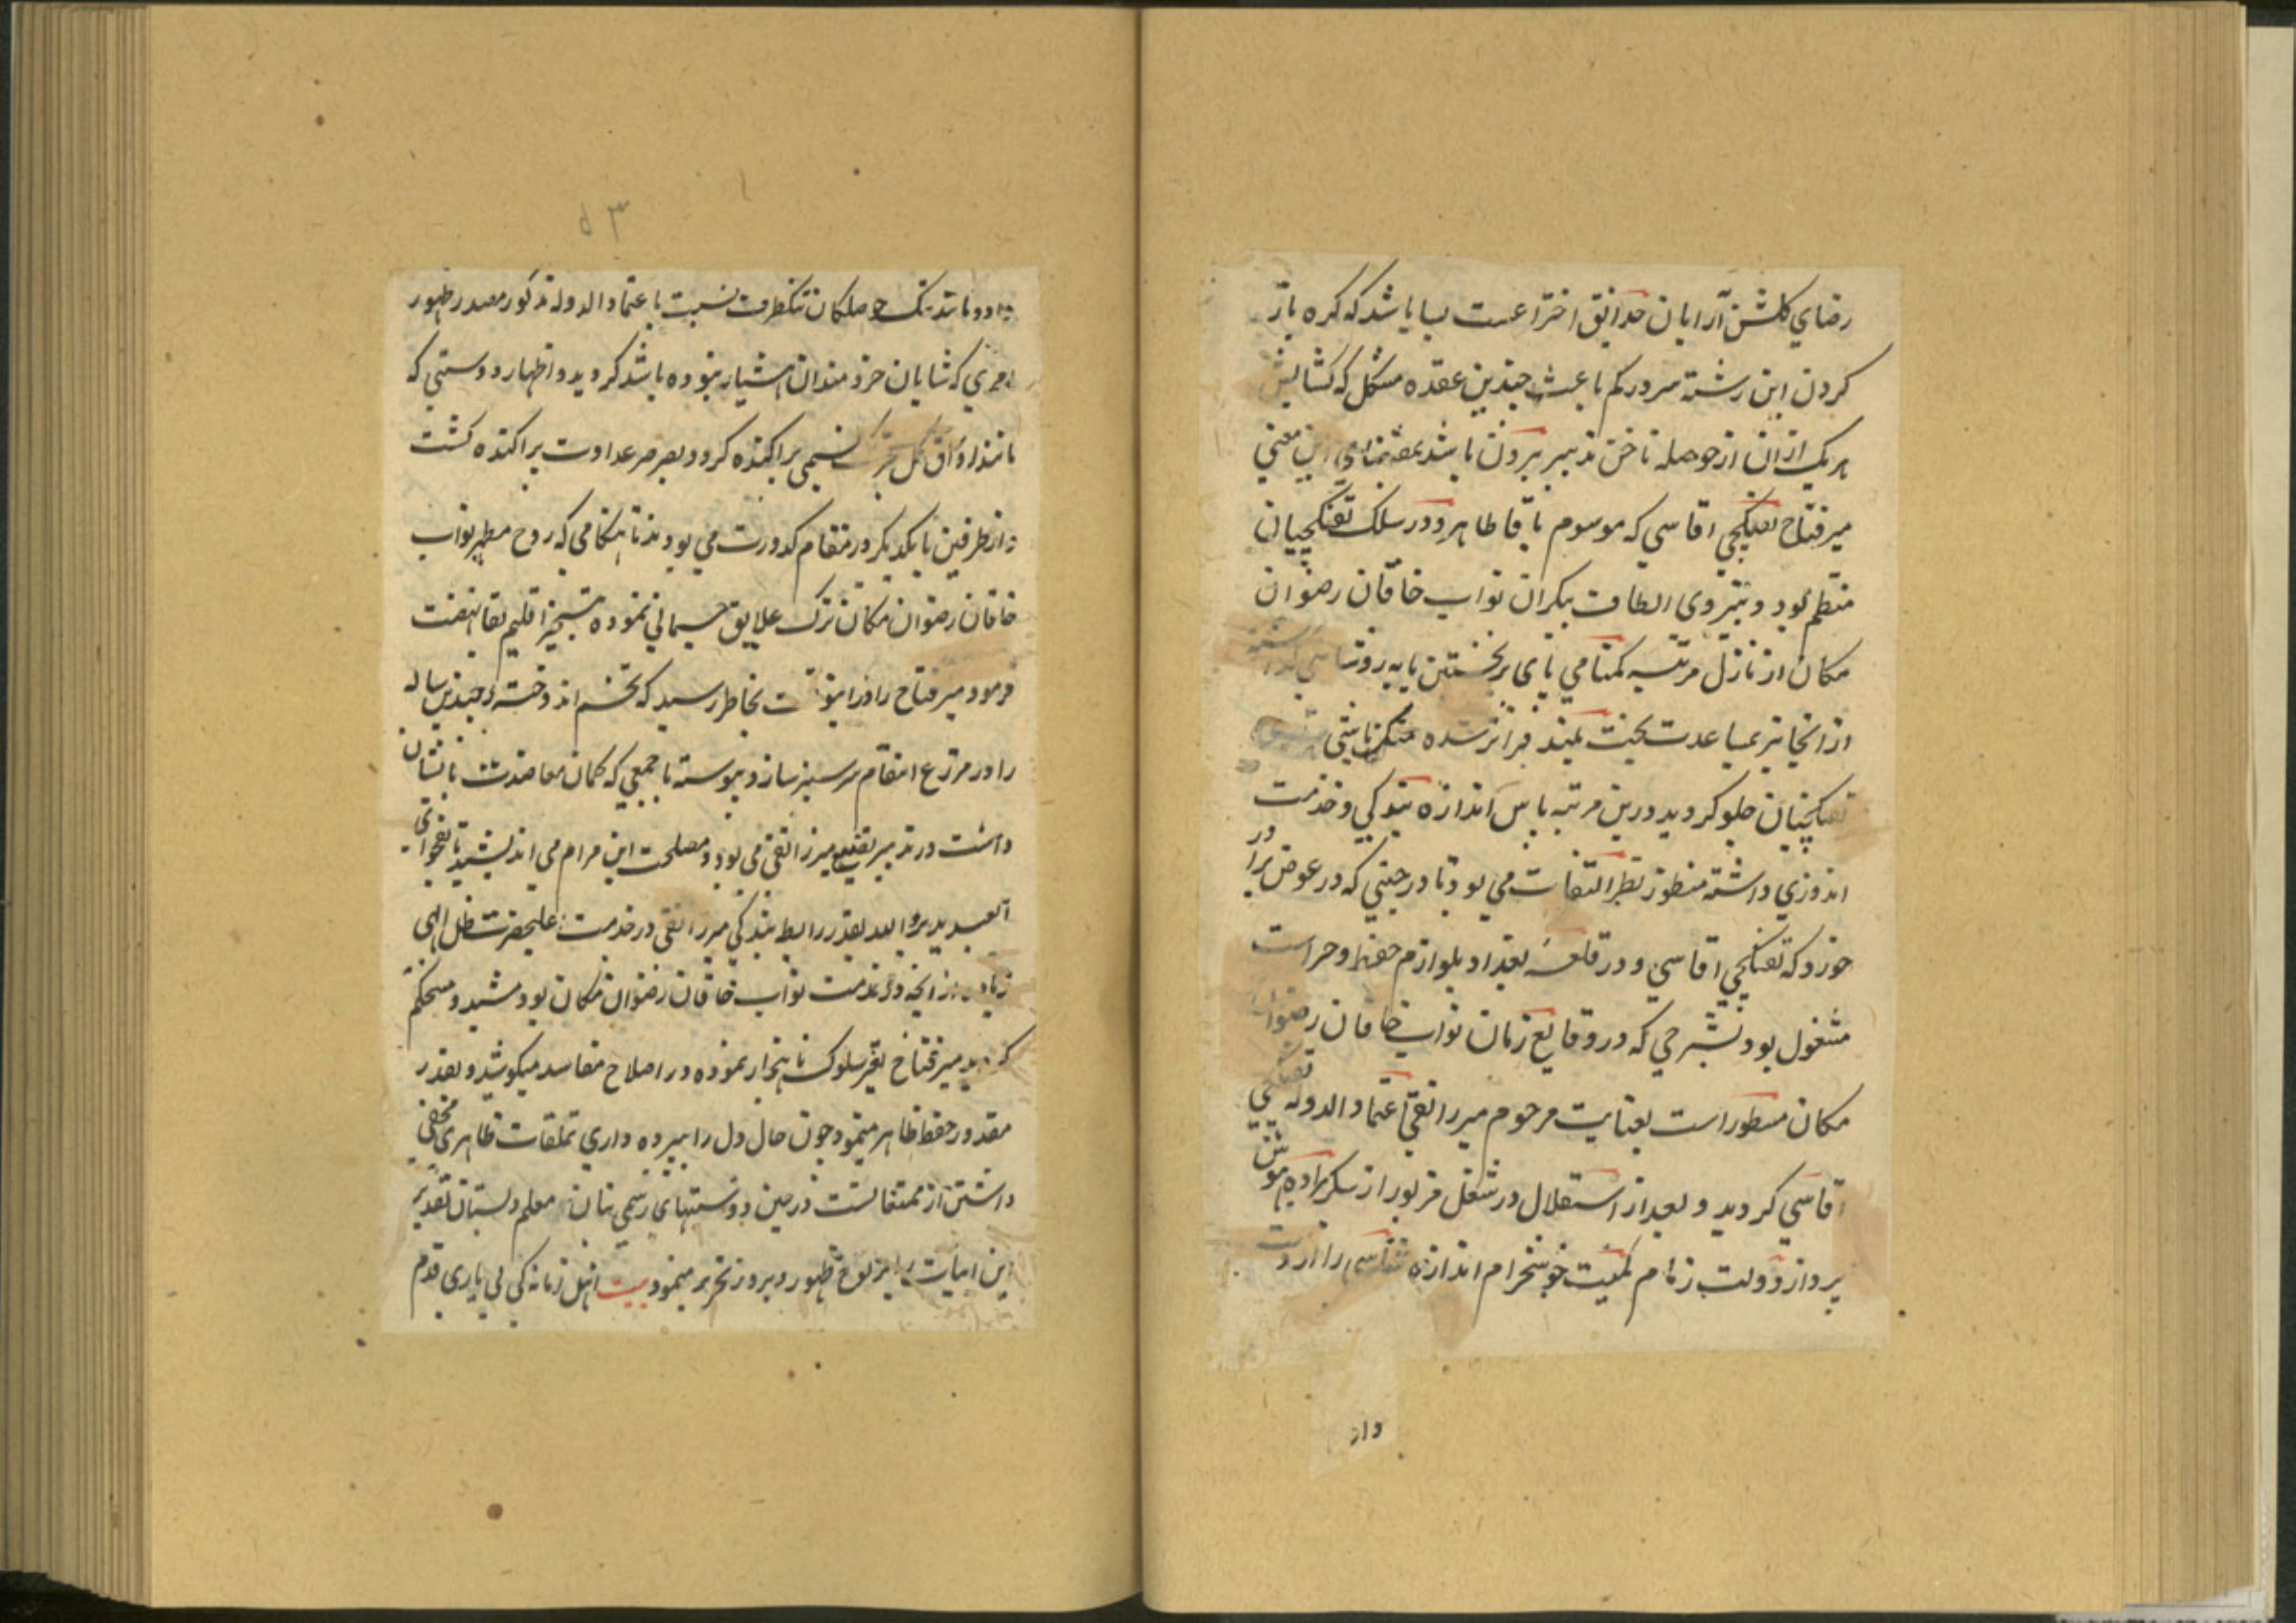 رضای گلشن آرایان حدایق اختراعست بسا باشد که گره باز
کردن این رشته سر در گم باعث چندین عقده مشکل که گشایش
هر یک از ان از حوصله ناخن تدبیر بیرون باشد بمقتضای این معنی
میر فتاح تفنگچی اقاسی که موسوم باقا طاهر و در سلک تفنگچیان
منتظم بود و بنیروی الطاف بیکران نواب خاقان رضوان
مکان از نازل مرتبه کمنامی پای بر نخستین پایه روشناسی گذاشته
از انجا نیز بمساعدت بخت بلند فراتر شده مین باشی
تفنگچیان جلو گردید درین مرتبه پاس اندازه بندگی و خدمت
اندوزی داشته منظور نظر التفات می بود تا در حینی که در عوض برادر
خود که تفنگچی اقاسی و در قلعه بغداد بلوازم حفظ و حراست
مشغول بود بشرحی که در وقایع زمان نواب خاقان رضوان
مکان مسطور است بعنایت مرحوم میرزا تقی اعتماد الدوله تفنگچی
اقاسی گردید و بعد از استقلال در شغل مزبور از سکر باده هوش
پرداز دولت زمام کمیت خوشخرام اندازه شناسی را از دست
داد
داده مانند تنک حوصلکان تنکظرف نسبت باعتماد الدوله مذکور مصدر ظهور
امری که شایان خردمندان هشیار نبوده باشد گردید و اظهار دوستی که
مانند اوراق گل نسیمی پراکنده گردد بصرصر عداوت پراکنده گشت
و از طرفین با یکدیگر در مقام کدورت می بودند تا هنگامی که روح مطهر نواب
خاقان رضوان مکان ترک علایق جسمانی نموده بتسخیر اقلیم بقا نهضت
فرمود میر فتاح را در اینوقت بخاطر رسید که تخم اندوخته چندین ساله
را در مزرع انتقام سرسبز سازد پیوسته با جمعی که گمان معاضدت بانشان
داشت در تدبیر تضییع میرزا تقی می بود و مصلحت این مرام می اندیشید تا بفحوای
العبد یدبر و الله یقدر رابطه بندگی میرزا تقی در خدمت اعلیحضرت ظل الهی
زیاده از انچه در خدمت نواب خاقان رضوان مکان بود مشید و مستحکم
گردید میر فتاح تغیر سلوک ناهنجار نموده در اصلاح مفاسد میکوشد و بقدر
مقدور حفظ ظاهر مینمود چون حال دل را به پرده داری تملقات ظاهری مخفی
داشتن از ممتنعاتست در بین دوستیهای رسمی بنان معلم دبستان تقدیر
این ابیات را بر لوح ظهور و بروز تحریر مینمود بیت اهل زمانه کی پی یاری قدم
۵۳